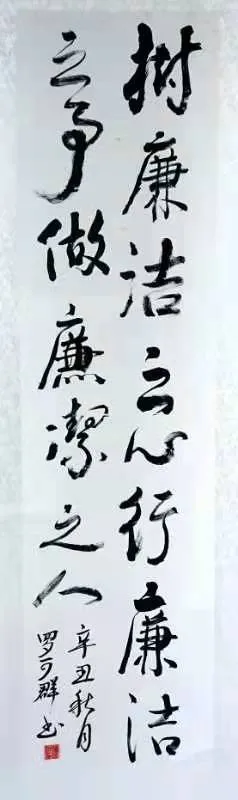 树廉洁之心行廉洁
之事做廉潔之人
辛丑秋月
罗可群书